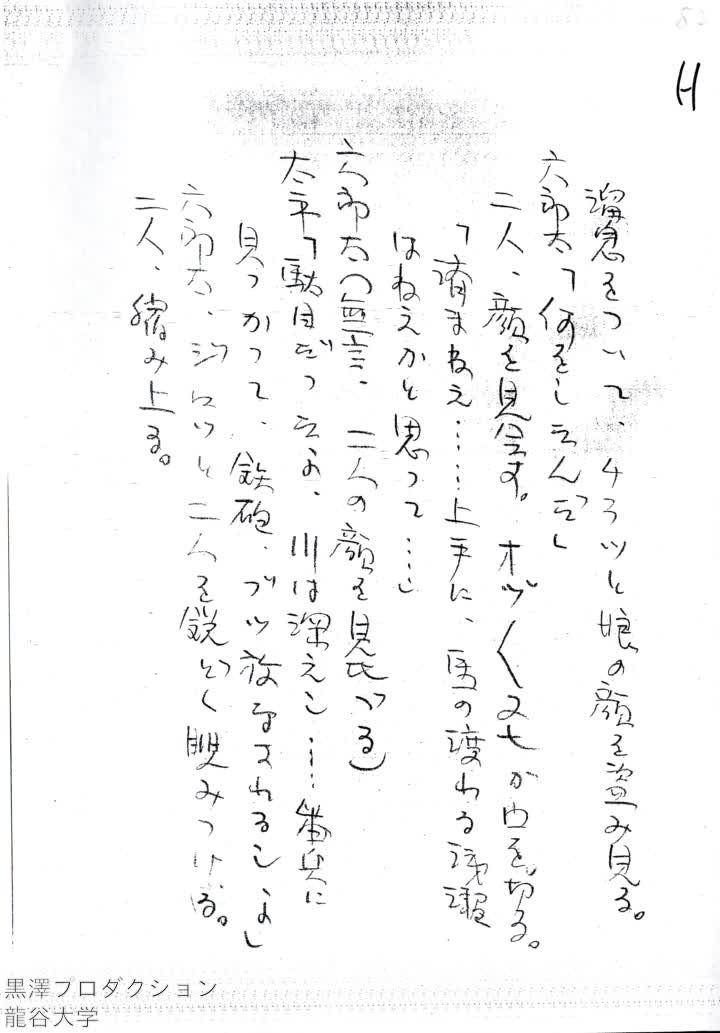 H
溜息をついて、チラツと娘の顔を盗み見る。
六郎太「何をしてんだ」
二人、顔を見合す。オヅ〱又七が口を切る。
「済まねえ……上手に、馬の渡れる浅瀬
はねえかと思って…」
六郎太(無言、二人の顔を見比べる)
太平「駄目だってよ、川は深えし……番兵に
見つかって、鉄砲、ブッ放なされるしよ」
六郎太、ジロツと二人を鋭どく睨みつける。
二人、縮み上る。
黒澤プロダクション
龍谷大学